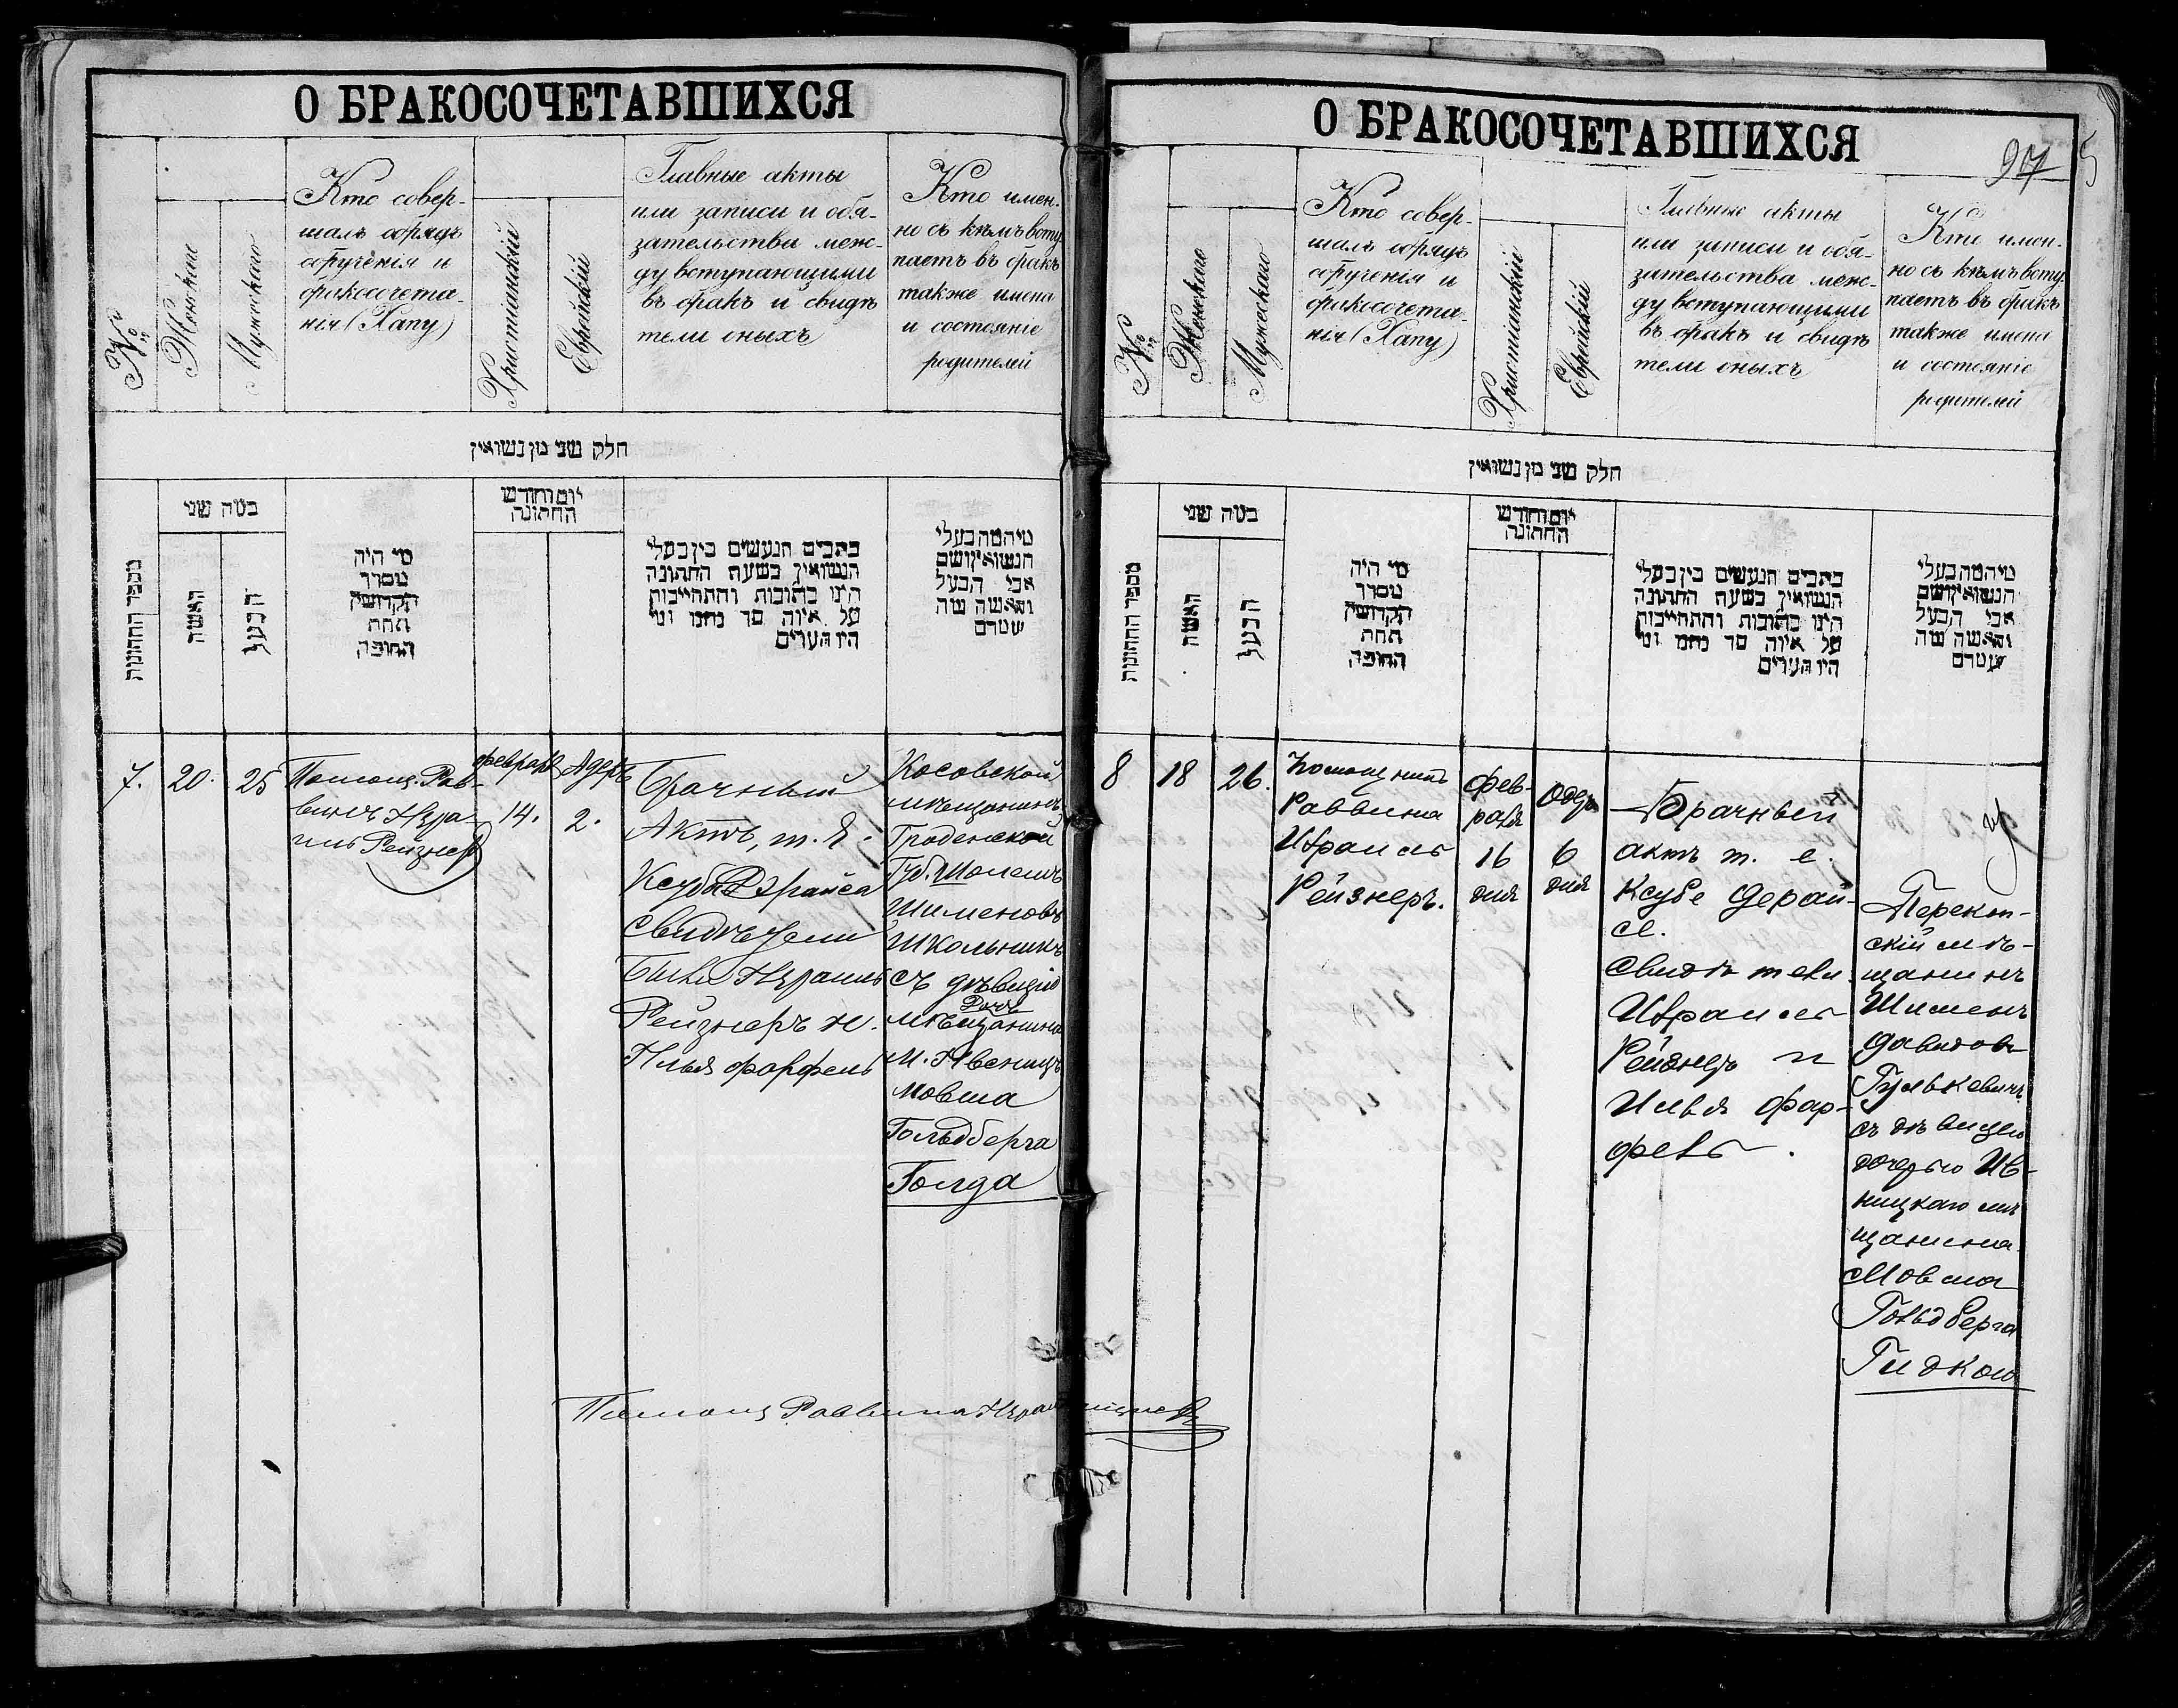 О БРАКОСОЧЕТАВШИХСЯ
№
Женскаго
Мужескаго
Кто совер-
шалъ обрядъ
обрученія и
бракосочета-
нія (Хапу)
Христіанскій
Еврейскій
Главные акты
или записи и обя-
зательства меж-
ду вступающими
въ бракъ и свидѣ
тели оныхъ
Кто имен-
но съ кѣмъ всту
паетъ въ бракъ
также имена
и состояніе
родителей
חלק שני מן נשואין
מספר החתונות
כמה שני
האשה
הבעל
מי היה
מסדר
הקדושין
תחת
החופה
יום וחודש
החתונה
כתבים הנעשים בין בעלי
הנשואין בשעת החתונה
היינו כתובות והתחייבות
על איזה סך נתנו ומי
היו העדים
מיהמה בעלי
הנשואין ושם
אבי הבעל
והאשה ומה
מעמדם
7.
20.
25
Помощ. Рав-
вина Изра-
иль Рейзнер
февраль
14.
Адеръ
2.
Брачный
Актъ, т. е.
Ксубе Драйса
Свидѣтели
были Израиль
Рейзнеръ и
Илья Фарфель
Косовской
мѣщанинъ
Гроденской
Губ. Шолемъ
Шименовъ
Школьникъ
съ дѣвицею
Дочь
мѣщанина
м. Ивеницъ
Мовша
Гольдберга
Голда
Помощ Раввина Израиль Рейзнер
О БРАКОСОЧЕТАВШИХСЯ
97
5
№
Женскаго
Мужескаго
Кто совер-
шалъ обрядъ
обрученія и
бракосочета-
нія (Хапу)
Христіанскій
Еврейскій
Главные акты
или записи и обя-
зательства меж-
ду вступающими
въ бракъ и свидѣ
тели оныхъ
Кто имен-
но съ кѣмъ всту
паетъ въ бракъ
также имена
и состояніе
родителей
חלק שני מן נשואין
מספר החתונות
כמה שני
האשה
הבעל
מי היה
מסדר
הקדושין
תחת
החופה
יום וחודש
החתונה
כתבים הנעשים בין בעלי
הנשואין בשעת החתונה
היינו כתובות והתחייבות
על איזה סך נתנו ומי
היו העדים
מיהמה בעלי
הנשואין ושם
אבי הבעל
והאשה ומה
מעמדם
8
18
26.
Помощникъ
Раввина
Израиль
Рейзнеръ.
Фев-
раля
16
дня
Одер
6
дня
Брачный
актъ т. е.
Ксубе Дерай-
се.
Свидѣтели
Израиль
Рейзнеръ и
Илья Фар-
фель.
Перекоп-
скій мѣ-
щанинъ
Шименъ
Давидовъ
Гулькевичъ
съ дѣвицею
дочерью Ив-
ницкаго мѣ
щанина
Мовша
Гольдберга
Гидкою